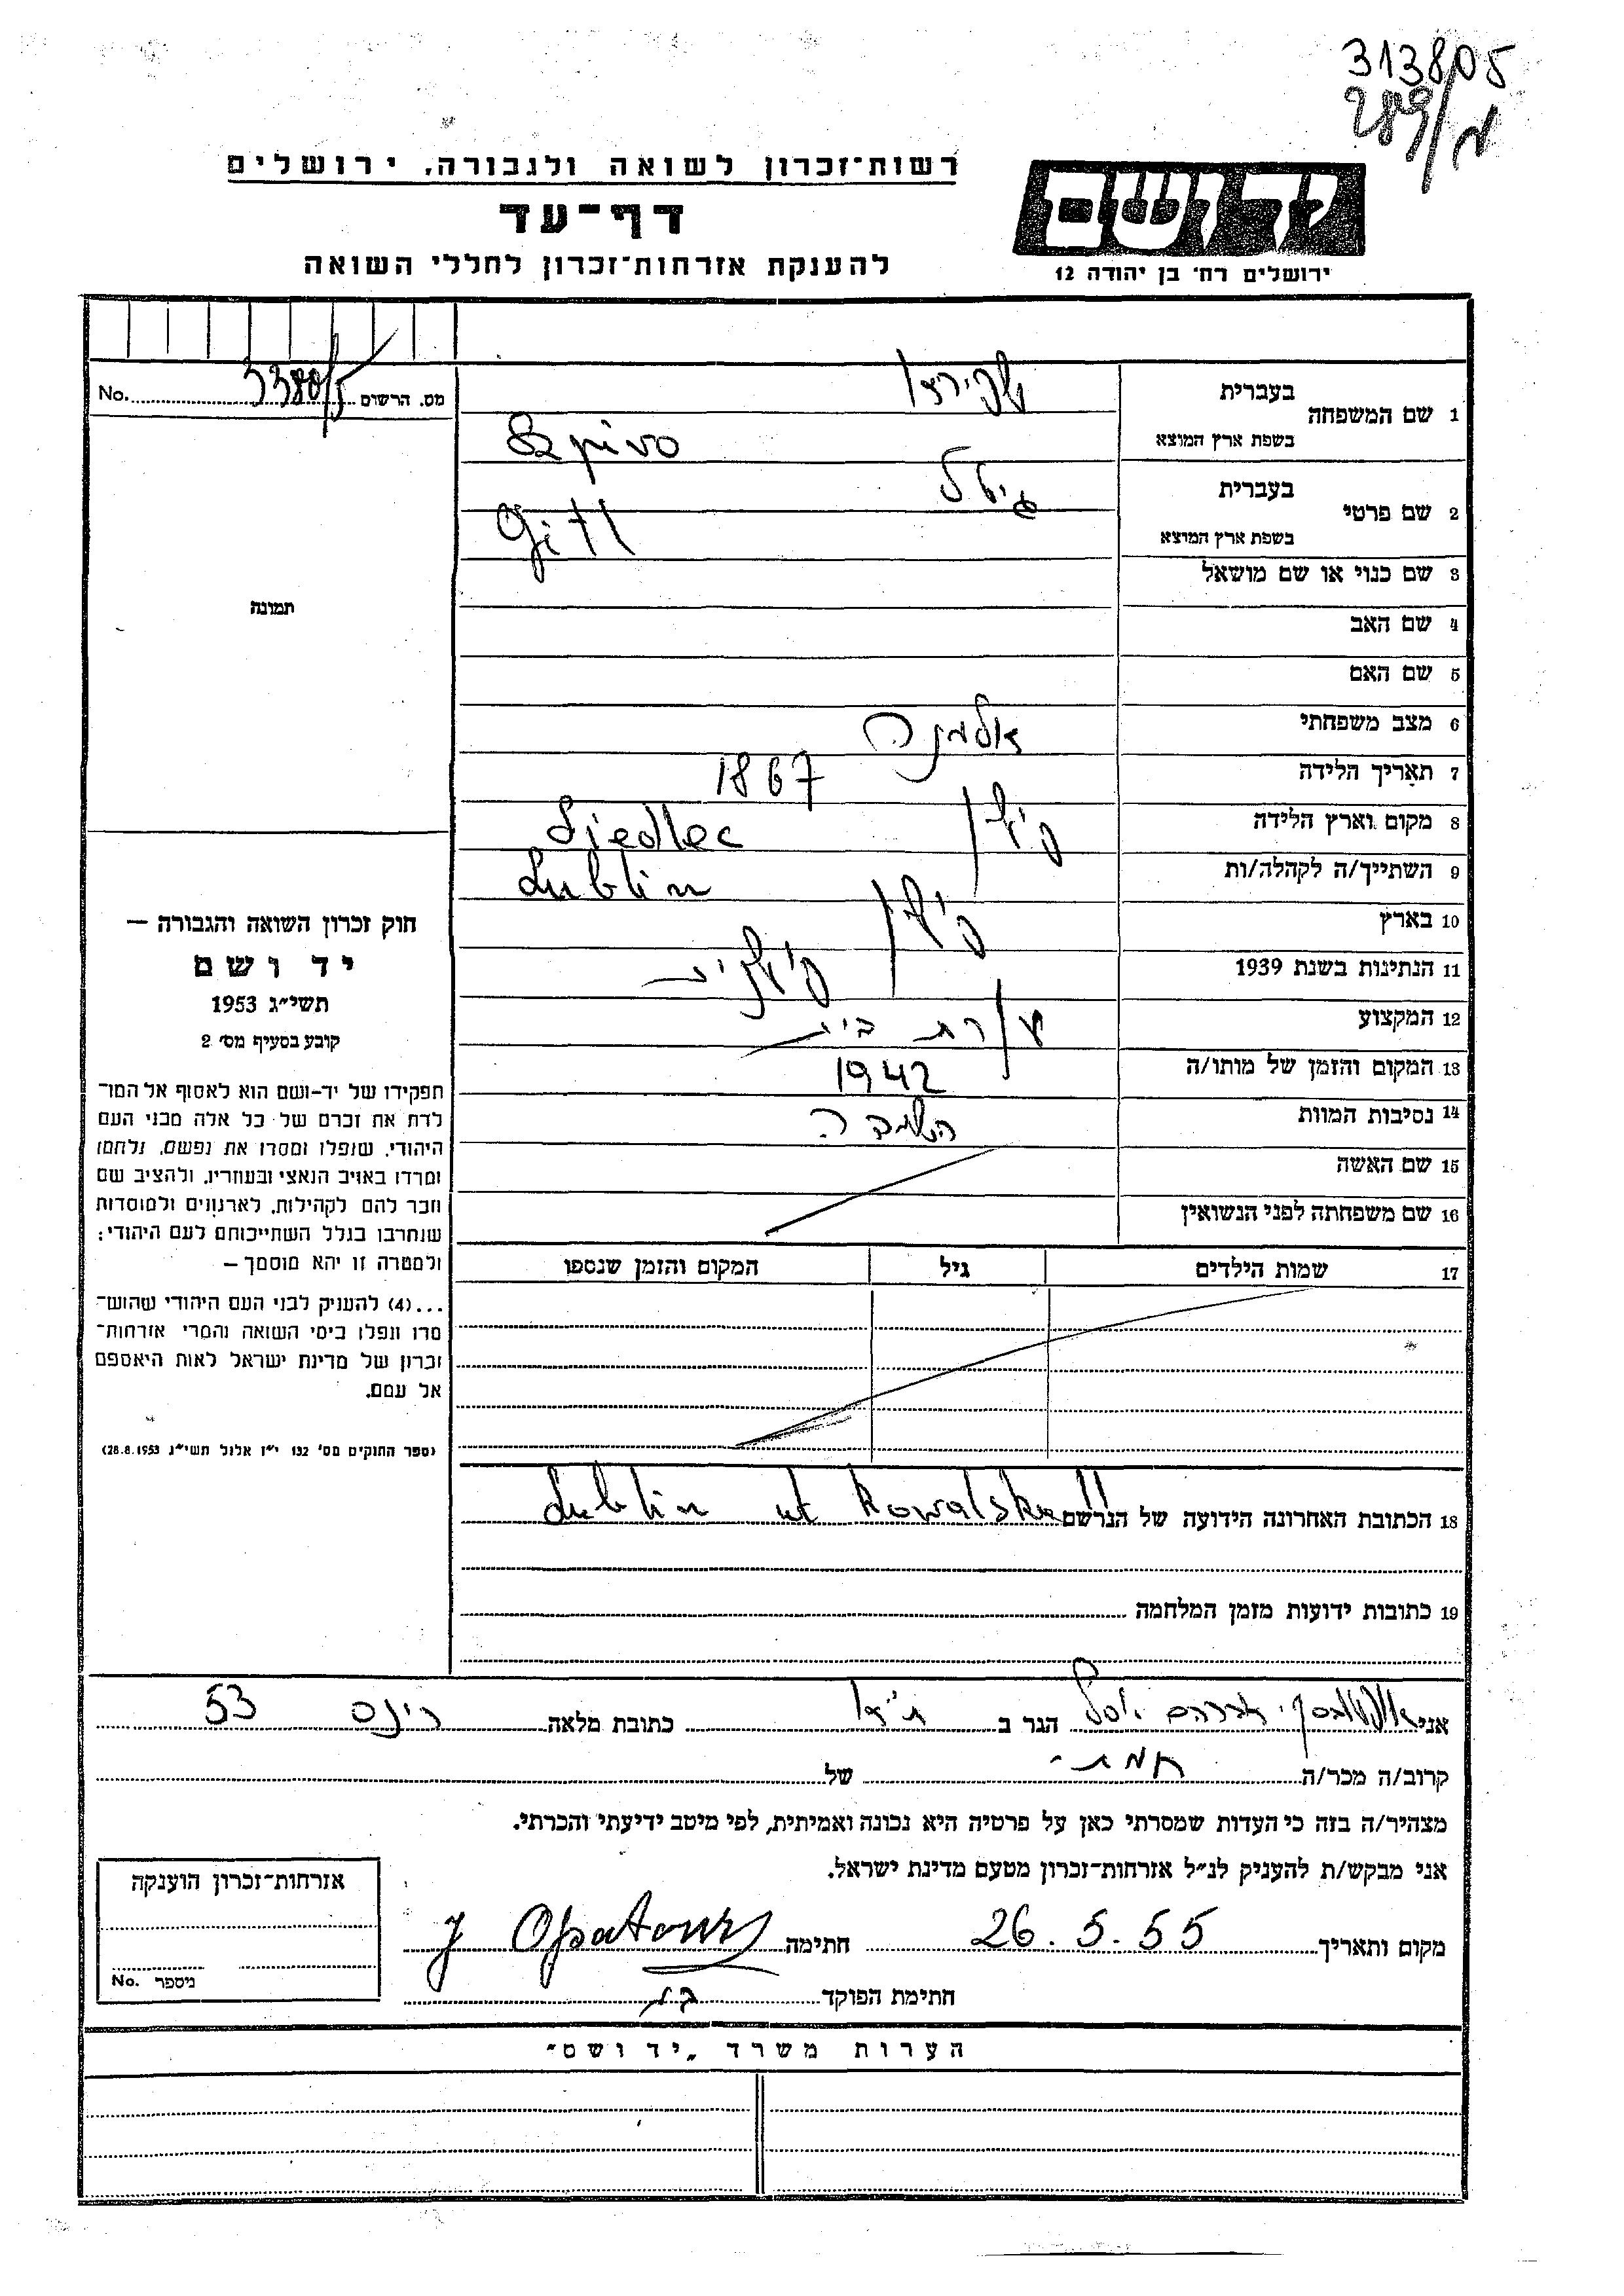 313805
289/מ
רשות־זכרון לשואה ולגבורה, ירושלים
דף־עד
להענקת אזרחות־זכרון לחללי השואה
ידושם
ירושלים רח' בן יהודה 12
מס. הרשום No.
1 שם המשפחה
בעברית שפירא
בשפת ארץ המוצא
2 שם פרטי
בעברית גיטל
בשפת ארץ המוצא Gitl
3 שם כנוי או שם מושאל
4 שם האב
5 שם האם
6 מצב משפחתי אלמנה
7 תאריך הלידה 1867
8 מקום וארץ הלידה פולין Siedlec
9 השתייך/ה לקהלה/ות Lublin
10 בארץ פולין
11 הנתינות בשנת 1939 פולנית
12 המקצוע עקרת בית
13 המקום והזמן של מותו/ה 1942
14 נסיבות המוות השמדה
15 שם האשה
16 שם משפחתה לפני הנשואין
17 שמות הילדים גיל המקום והזמן שנספו
18 הכתובת האחרונה הידועה של הנרשם Lublin ul Kowalska 11
19 כתובות ידועות מזמן המלחמה
תמונה
חוק זכרון השואה והגבורה —
יד ושם
תשי״ג 1953
קובע בסעיף מס' 2
תפקידו של יד-ושם הוא לאסוף אל המו־
לדת את זכרם של כל אלה מבני העם
היהודי, שנפלו ומסרו את נפשם, נלחמו
ומרדו באויב הנאצי ובעוזריו, ולהציב שם
וזכר להם לקהילות, לארגונים ולמוסדות
שנחרבו בגלל השתייכותם לעם היהודי;
ולמטרה זו יהא מוסמך —
...(4) להעניק לבני העם היהודי שהוש־
מדו ונפלו בימי השואה והמרי אזרחות־
זכרון של מדינת ישראל לאות היאספם
אל עמם.
(ספר החוקים מס' 132 י״ז אלול תשי״ג 28.8.1953)
אני הגר ב ת״א כתובת מלאה רינס 53
קרוב/ה מכר/ה של
מצהיר/ה בזה כי העדות שמסרתי כאן על פרטיה היא נכונה ואמיתית, לפי מיטב ידיעתי והכרתי.
אני מבקש/ת להעניק לנ״ל אזרחות־זכרון מטעם מדינת ישראל.
מקום ותאריך 26.5.55 חתימה
חתימת הפוקד
אזרחות־זכרון הוענקה
מיספר No.
הערות משרד „יד ושם״